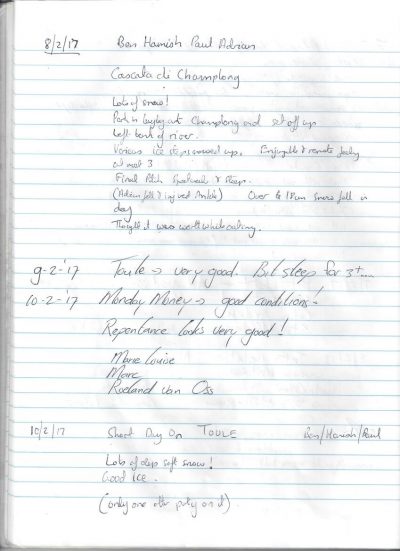 8/2/17 Ben Hamish Paul Adrian
Cascata di Champlong
Lots of snow!
Park in layby at Champlong and set off up
left bank of river.
Various ice steps up. Enjoyable & remote feeling
3
Final Pitch Spectacular & Steep.
(Adrian fell & injured Ankle) Over 1 18cm snow fall in
day
Thought it was worthwhile
9-2-'17 Toule → very good. Bit steep for 3+....
10-2-'17 Monday Money → good conditions!
Repentance looks very good!
Marie Louise
Marc
Roeland van Oss
10/2/17 Short Day On TOULE Ben/Hamish/Paul
Lots of deep soft snow!
Good Ice.
(only one other party on it).